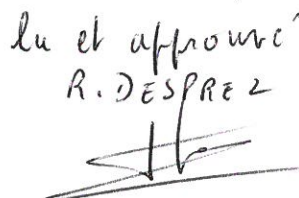 lu et approuvé
R. DESPREZ